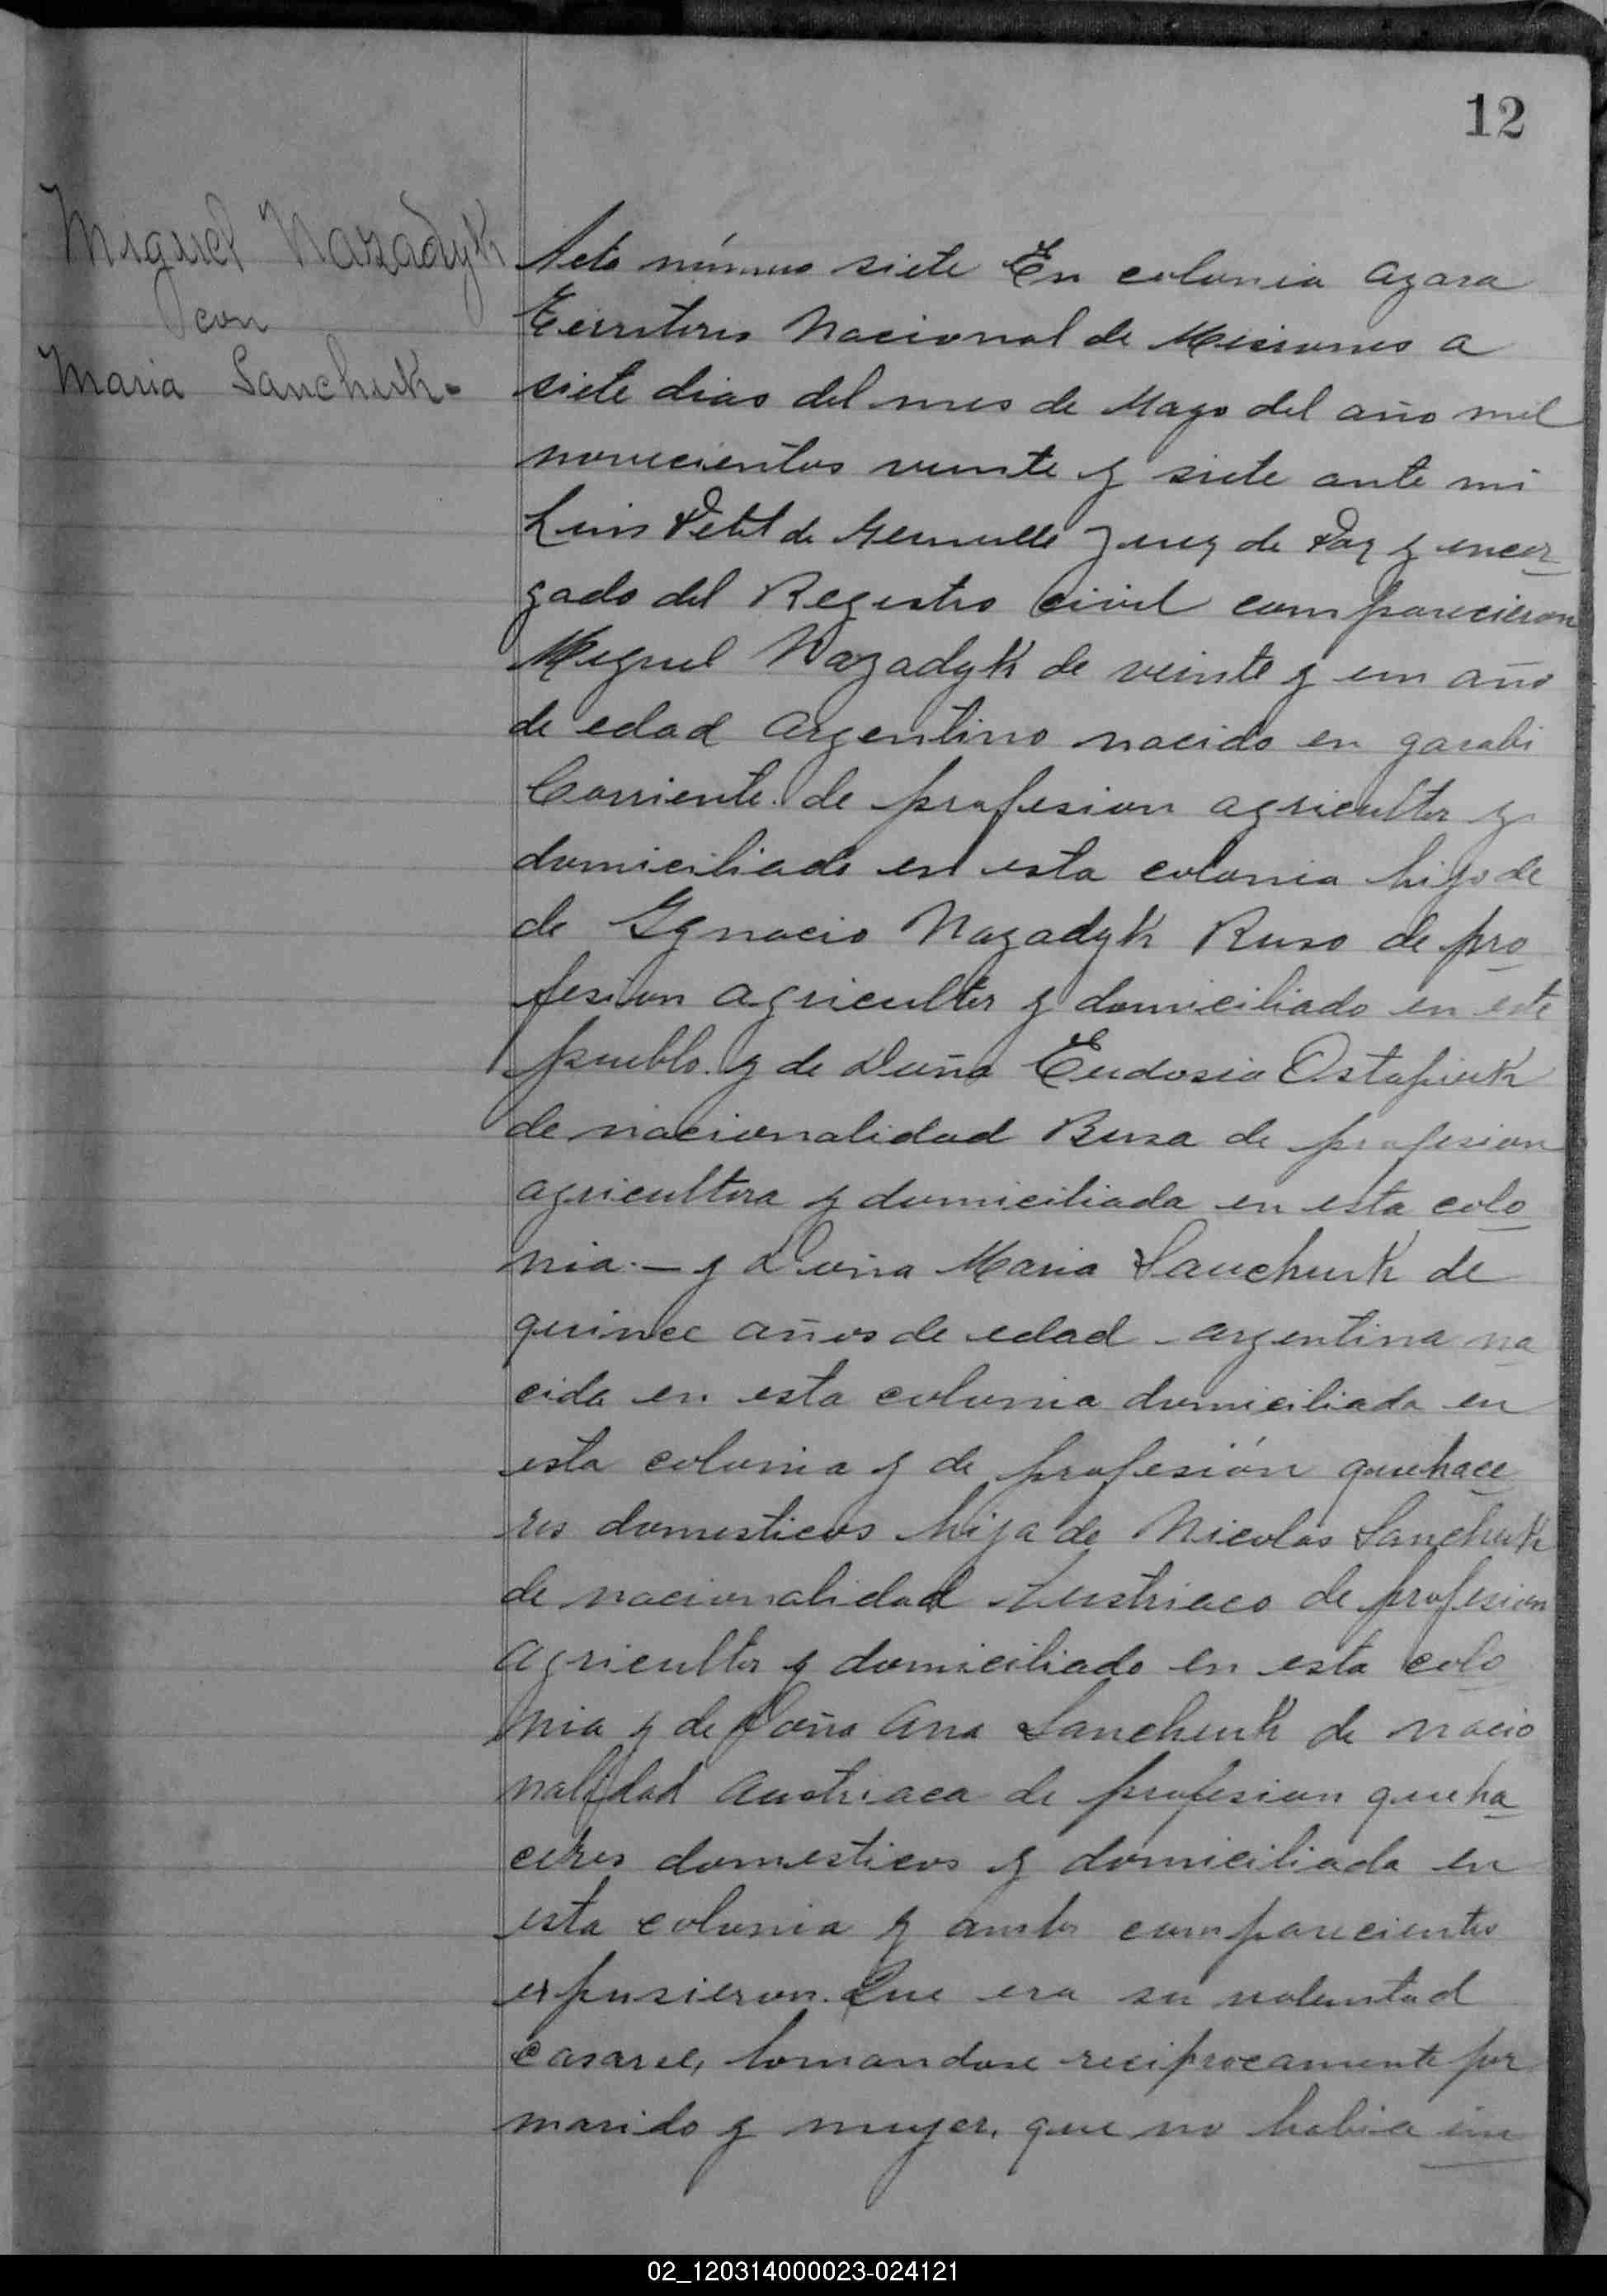 12
Miguel Nazadyk
con
Maria Sanchuk.
Acto número siete En colonia Azara
Territorio Nacional de Misiones a
siete dias del mes de Mayo del año mil
novecientos veinte y siete ante mi
Luis Petit de Juez de Paz y encar
gado del Registro Civil comparecieron
Miguel Nazadyk de veinte y un año
de edad Argentino nacido en garabi
Corriente. de profesion agricultor y
domiciliado en esta colonia hijo de
de Ygnacio Nazadyk Ruso de pro
fesion agricultor y domiciliado en este
pueblo. y de Duña Eudosia Ostapiuk
de nacionalidad Rusa de profesion
agricultora y domiciliada en esta colo
nia. — y Duña Maria Sanchuk de
quince años de edad - argentina na
cida en esta colonia domiciliada en
esta colonia y de profesión quehace
res domesticos hija de Nicolas Sanchuk
de nacionalidad Austriaco de profesion
agricultor y domiciliado en esta colo
nia y de Doña Ana Sanchuk de nacio
nalidad Austriaca de profesion queha
ceres domesticos y domiciliada en
esta colonia y ambos comparecientes
expusieron. Que era su voluntad
casarse, tomandose reciprocamente por
marido y mujer, que no habia im
02_120314000023-024121